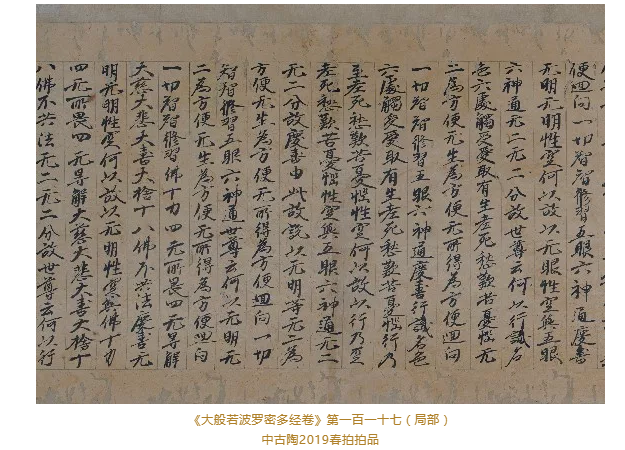 便迴向一切智智修習五眼六神通慶喜
无明无明性空何以故以无明性空與五眼
六神通无二无二分故世尊云何以行識名
色六處觸受愛取有生老死愁歎苦憂惱无
二為方便无生為方便无所得為方便迴向
一切智智修習五眼六神通慶喜行識名色
六處觸受愛取有生老死愁歎苦憂惱行乃
至老死愁歎苦憂惱性空何以故以行乃至
老死愁歎苦憂惱性空與五眼六神通无二
无二分故慶喜由此故說以无明等无二為
方便无生為方便无所得為方便迴向一切
智智修習五眼六神通世尊云何以无明无
二為方便无生為方便无所得為方便迴向
一切智智修習佛十力四无所畏四无㝵解
大慈大悲大喜大捨十八佛不共法慶喜无
明无明性空何以故以无明性空與佛十力
四无所畏四无㝵解大慈大悲大喜大捨十
八佛不共法无二无二分故世尊云何以行
《大般若波罗密多经卷》第一百一十七（局部）
中古陶2019春拍拍品